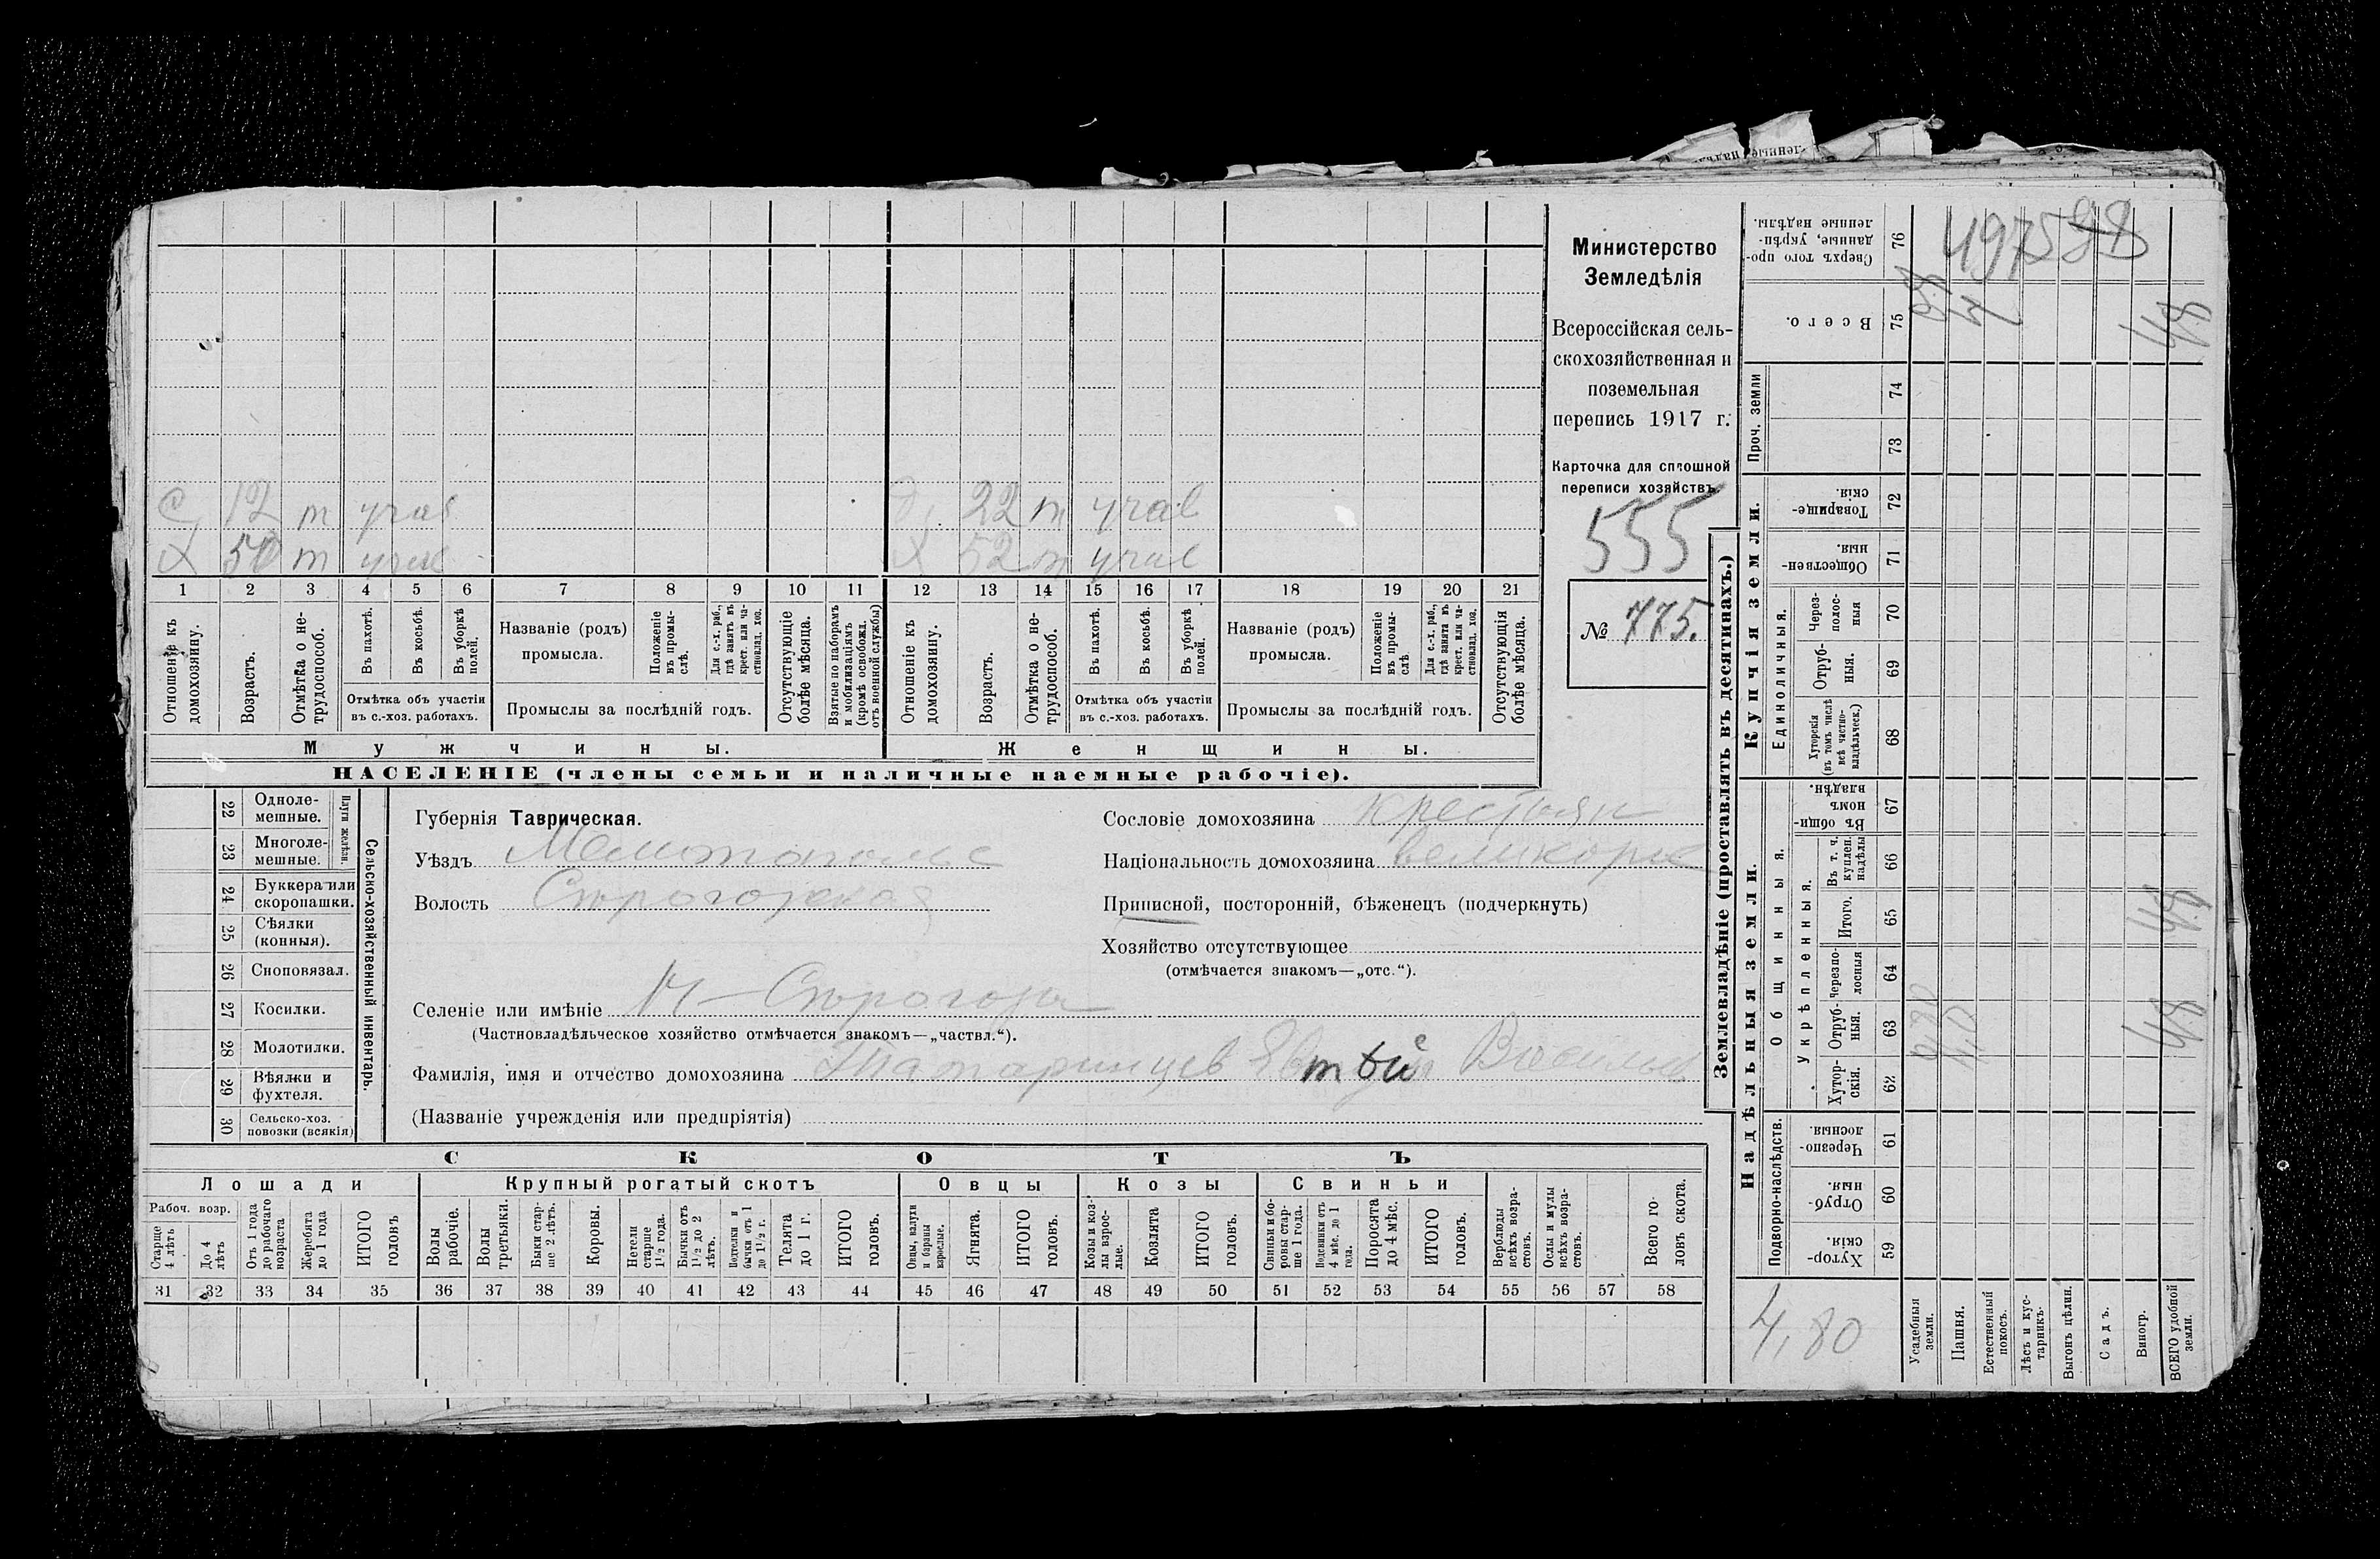 С 12 т учас
Х 50 т учас
Д 22 т учас
Х 52 т учас
1 2 3 4 5 6 7 8 9 10 11 12 13 14 15 16 17 18 19 20 21
Отношеніе къ домохозяину.
Возрастъ.
Отмѣтка о нетрудоспособ.
Въ пахотѣ.
Въ косьбѣ.
Въ уборкѣ полей.
Отмѣтка объ участіи
въ с.-хоз. работахъ.
Названіе (родъ)
промысла.
Положеніе въ промыслѣ.
Для с.-х. раб., гдѣ занятъ въ крест. или частновлад. хоз.
Промыслы за послѣдній годъ.
Отсутствующіе болѣе мѣсяца.
Взятые по наборамъ и мобилизаціямъ (кромѣ освобожд. отъ военной службы)
Отношеніе къ домохозяину.
Возрастъ.
Отмѣтка о нетрудоспособ.
Въ пахотѣ.
Въ косьбѣ.
Въ уборкѣ полей.
Отмѣтка объ участіи
въ с.-хоз. работахъ.
Названіе (родъ)
промысла.
Положеніе въ промыслѣ
Для с.-х. раб., гдѣ занята въ крест. или частновлад. хоз.
Промыслы за послѣдній годъ.
Отсутствующія болѣе мѣсяца.
Мужчины.
Женщины.
НАСЕЛЕНІЕ (члены семьи и наличные наемные рабочіе).
Министерство
Земледѣлія
Всероссійская сель-
скохозяйственная и
поземельная
перепись 1917 г.
Карточка для сплошной
переписи хозяйствъ.
555
№ 775.
22 Однолемешные.
23 Многолемешные.
Плуги желѣзн.
24 Буккера или скоропашки.
25 Сѣялки (конныя).
26 Сноповязал.
27 Косилки.
28 Молотилки.
29 Вѣялки и фухтеля.
30 Сельско-хоз. повозки (всякія)
Сельско-хозяйственный инвентарь.
Губернія Таврическая.
Уѣздъ Мелитопольс
Волость
Селеніе или имѣніе
(Частновладѣльческое хозяйство отмѣчается знакомъ—„частвл.“).
Фамилія, имя и отчество домохозяина Татаринцев
(Названіе учрежденія или предпріятія)
Сословіе домохозяина крестьян
Національность домохозяина великорус
Приписной, посторонній, бѣженецъ (подчеркнуть)
Хозяйство отсутствующее
(отмѣчается знакомъ—„отс.“).
СКОТЪ
Лошади
Крупный рогатый скотъ
Овцы
Козы
Свиньи
Рабоч. возр.
Старше 4 лѣтъ
До 4 лѣтъ
Отъ 1 года до рабочаго возраста
Жеребята до 1 года
ИТОГО головъ
Волы рабочіе.
Волы третьяки.
Быки старше 2 лѣтъ.
Коровы.
Нетели старше 1½ года.
Бычки отъ 1½ до 2 лѣтъ.
Подтелки и бычки отъ 1 до 1½ г.
Телята до 1 г.
ИТОГО головъ.
Овцы, валухи и бараны взрослые.
Ягнята.
ИТОГО головъ.
Козы и козлы взрослые.
Козлята
ИТОГО головъ.
Свиньи и боровы старше 1 года.
Подсвинки отъ 4 мѣс. до 1 года.
Поросята до 4 мѣс.
ИТОГО головъ.
Верблюды всѣхъ возрастовъ.
Ослы и мулы всѣхъ возрастовъ.
Всего головъ скота.
31 32 33 34 35 36 37 38 39 40 41 42 43 44 45 46 47 48 49 50 51 52 53 54 55 56 57 58
Землевладѣніе (проставлять въ десятинахъ.)
Купчія земли.
Надѣльныя земли.
Сверхъ того проданные, укрѣпленные надѣлы. 76
Всего. 75
Проч. земли
74
73
Товарищескія. 72
Общественныя. 71
Единоличныя.
Черезполосныя 70
Отрубныя. 69
Хуторскія (въ томъ числѣ всѣ частновладѣльческ.) 68
Общинныя.
Въ общиномъ владѣн. 67
Укрѣпленныя.
Въ т. ч. куплен. надѣлы 66
Итого. 65
Черезполосныя 64
Отрубныя. 63
Хуторскія. 62
Подворно-наслѣдств.
Черезполосныя. 61
Отрубныя. 60
Хуторскія. 59
Усадебныя земли.
Пашня.
Естественный покосъ.
Лѣсъ и кустарникъ.
Выгонъ цѣлин.
Садъ.
Виногр.
ВСЕГО удобной земли.
4,80